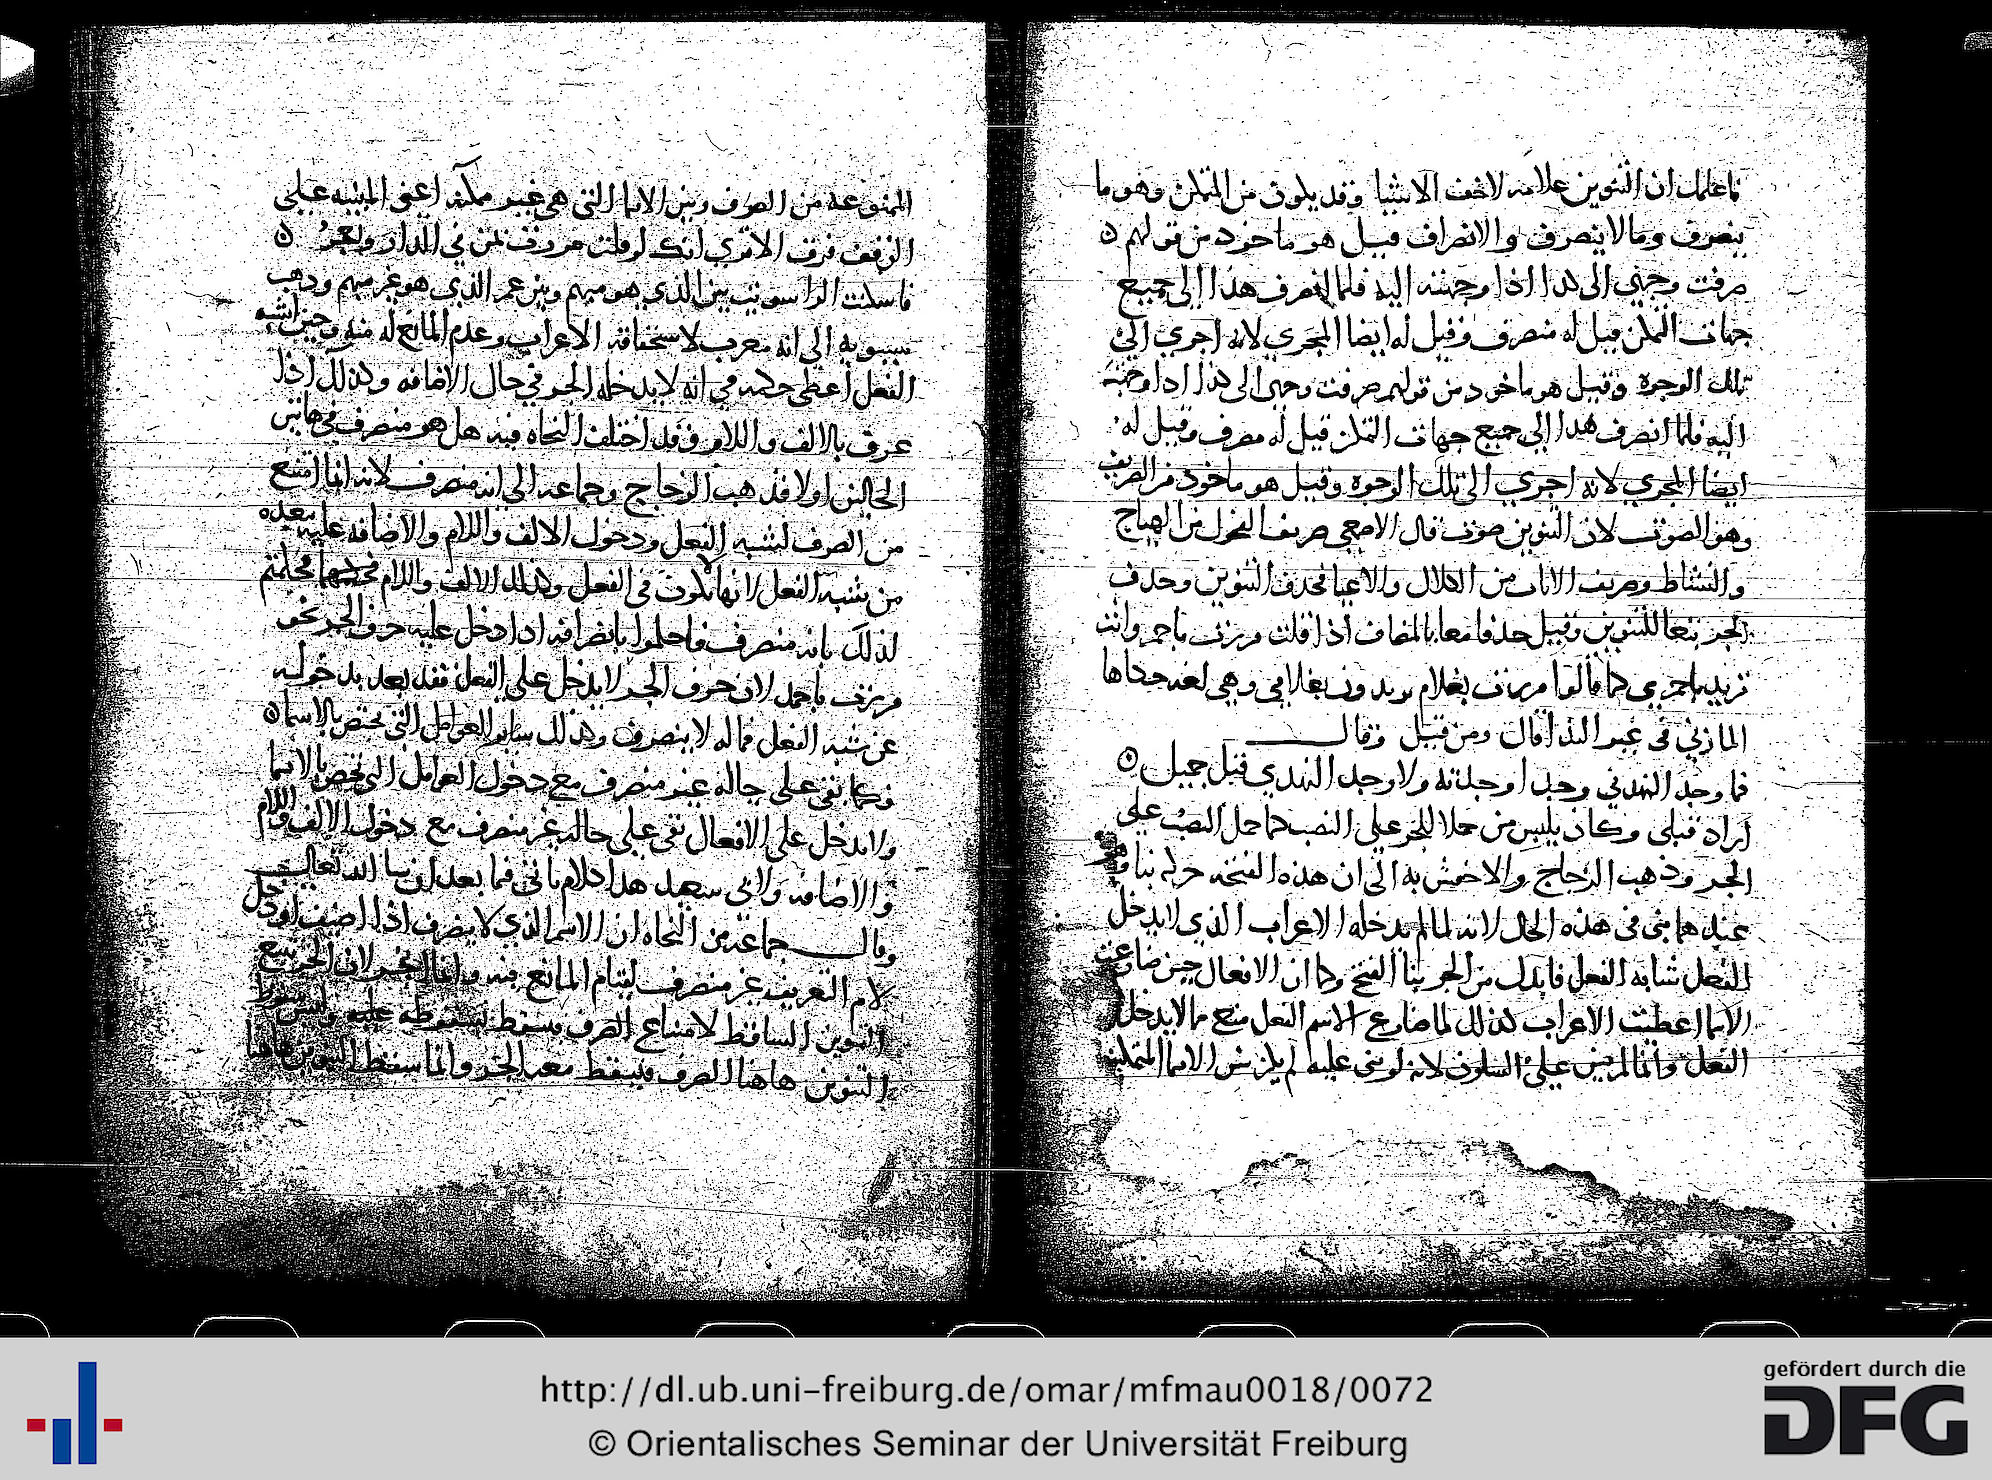 فاعلمك ان التنوين علامه لاخف الاشيا وقد يكون من المتمكن وهو ما
ينصرف وما لا ينصرف والانصراف قيل هو ماخوذ من قولهم
صرفت وجهي الى كذا اذا وجهته اليه فلما انصرف هذا الى جميع
جهات التمكن قيل له منصرف وقيل له ايضا المجرى لانه اجري الى
تلك الوجوه وقيل هو ماخوذ من قولهم صرفت وجهي الى كذا اذا وجهته
اليه فلما انصرف هذا الى جميع جهات التمكن قيل له مصرف وقيل له
ايضا المجرى لانه اجري الى تلك الوجوه وقيل هو ماخوذ من الصريف
وهو الصوت لان التنوين صوت قال الاصمعي صريف الفحول من الهياج
والنشاط وصريف الاناث من الكلال والاعيا فحذف التنوين وحذف
الجر تبعا للتنوين وقيل حذفا معا بالمضاف اذا قلت مررت باحمر وانت
تريد باحمري كما قالوا مررت بغلام يريدون بغلامي وهي لغه حكاها
المازني في غير الندا قال ومن قبل وقال
فما وجد النهدي وجدا وجدته ولا وجد النهدي قبل جميل
اراد قبلي وكان يلتبس من حملا للجر على النصب كما حمل النصب على
الجر وذهب الزجاج والاخفش به الى ان هذه الفتحه حركه بنا وهو
عندهما مبني في هذه الحال لانه لما لم يدخله الاعراب الذي لا يدخل
الفعل شابه الفعل فابدل من الجر بنا الفتح وكما ان الافعال حين ضارعت
الاسما اعطيت الاعراب كذلك لما ضارع الاسم الفعل منع مما لا يدخل
الفعل وانما لم يبن على السكون لانه لو بني عليه لم يكن بين الاسما المتمكنه
الممنوعه من الصرف وبين الاسما التي هي غير متمكنه اعني المبنيه على
الوقف فرق الا ترى انك لو قلت مررت بمن في الدار وبعمر
فاسكنت الرا سويت بين الذي هو مبهم وبين عمر الذي هو غير مبهم وذهب
سيبويه الى انه معرب لاستحقاقه الاعراب وعدم المانع له منه وحين اشبه
الفعل اعطي حكمه في انه لا يدخله الجر في حال الاضافه وكذلك اذا
عرف بالالف واللام وقد اختلف النحاه فيه هل هو منصرف في هاتين
الحالتين اولا فذهب الزجاج وجماعه الى انه منصرف لانه انما امتنع
من الصرف لشبه الفعل ودخول الالف واللام والاضافه عليه يبعده
من شبه الفعل لانها لا تكون في الفعل وكذلك الالف واللام
لذلك بانه منصرف بانصرافه اذا دخل عليه حرف الجر نحو
مررت باحمد لان حرف الجر لا يدخل على الفعل فقد بعد بدخوله
عن شبه الفعل فما له لا ينصرف وكذلك ساير العوامل التي تختص بالاسما
وكما بقي على حاله غير منصرف مع دخول العوامل التي تختص بالاسما
ولا تدخل على الافعال بقي على حاله غير منصرف مع دخول الالف واللام
والاضافه ولابي سعيد هذا كلام ياتي فيما بعد ان شا الله تعالى
وقال جماعه من النحاه ان الاسم الذي لا ينصرف اذا اضيف او دخل
لام التعريف غير منصرف لقيام المانع فيه وانما انجر لان الجر تبع
التنوين الساقط لامتناع الصرف يسقط بسقوطه عليه وليس سقوط
التنوين هاهنا للصرف فيسقط معه الجر وانما سقط التنوين هاهنا
http://dl.ub.uni-freiburg.de/omar/mfmau0018/0072
© Orientalisches Seminar der Universität Freiburg
gefördert durch die
DFG